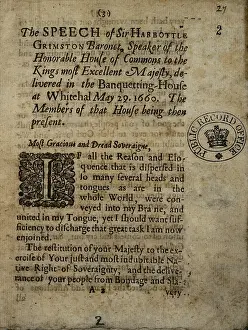 (3)
27
2
The SPEECH of Sir HARBOTTLE
GRIMSTON Baronet, Speaker of the
Honorable House of Commons to the
Kings most Excellent Majesty, de-
livered in the Banquetting-House
at Whitehal May 29. 1660. The
Members of that House being then
present.
PUBLIC RECORD OFFICE
Most Gracious and Dread Soveraigne,
IF all the Reason and Elo-
quence that is dispersed in
so many several heads and
tongues as are in the
whole World, were con-
veyed into my Braine, and
united in my Tongue, yet I should want suf-
ficiency to discharge that great task I am now
enjoyned.
The restitution of your Majesty to the ex-
ercise of Your just and most indubitable Na-
tive Right of Soveraignty, and the delive-
rance of your people from Bondage and Sla-
A 2
very
2